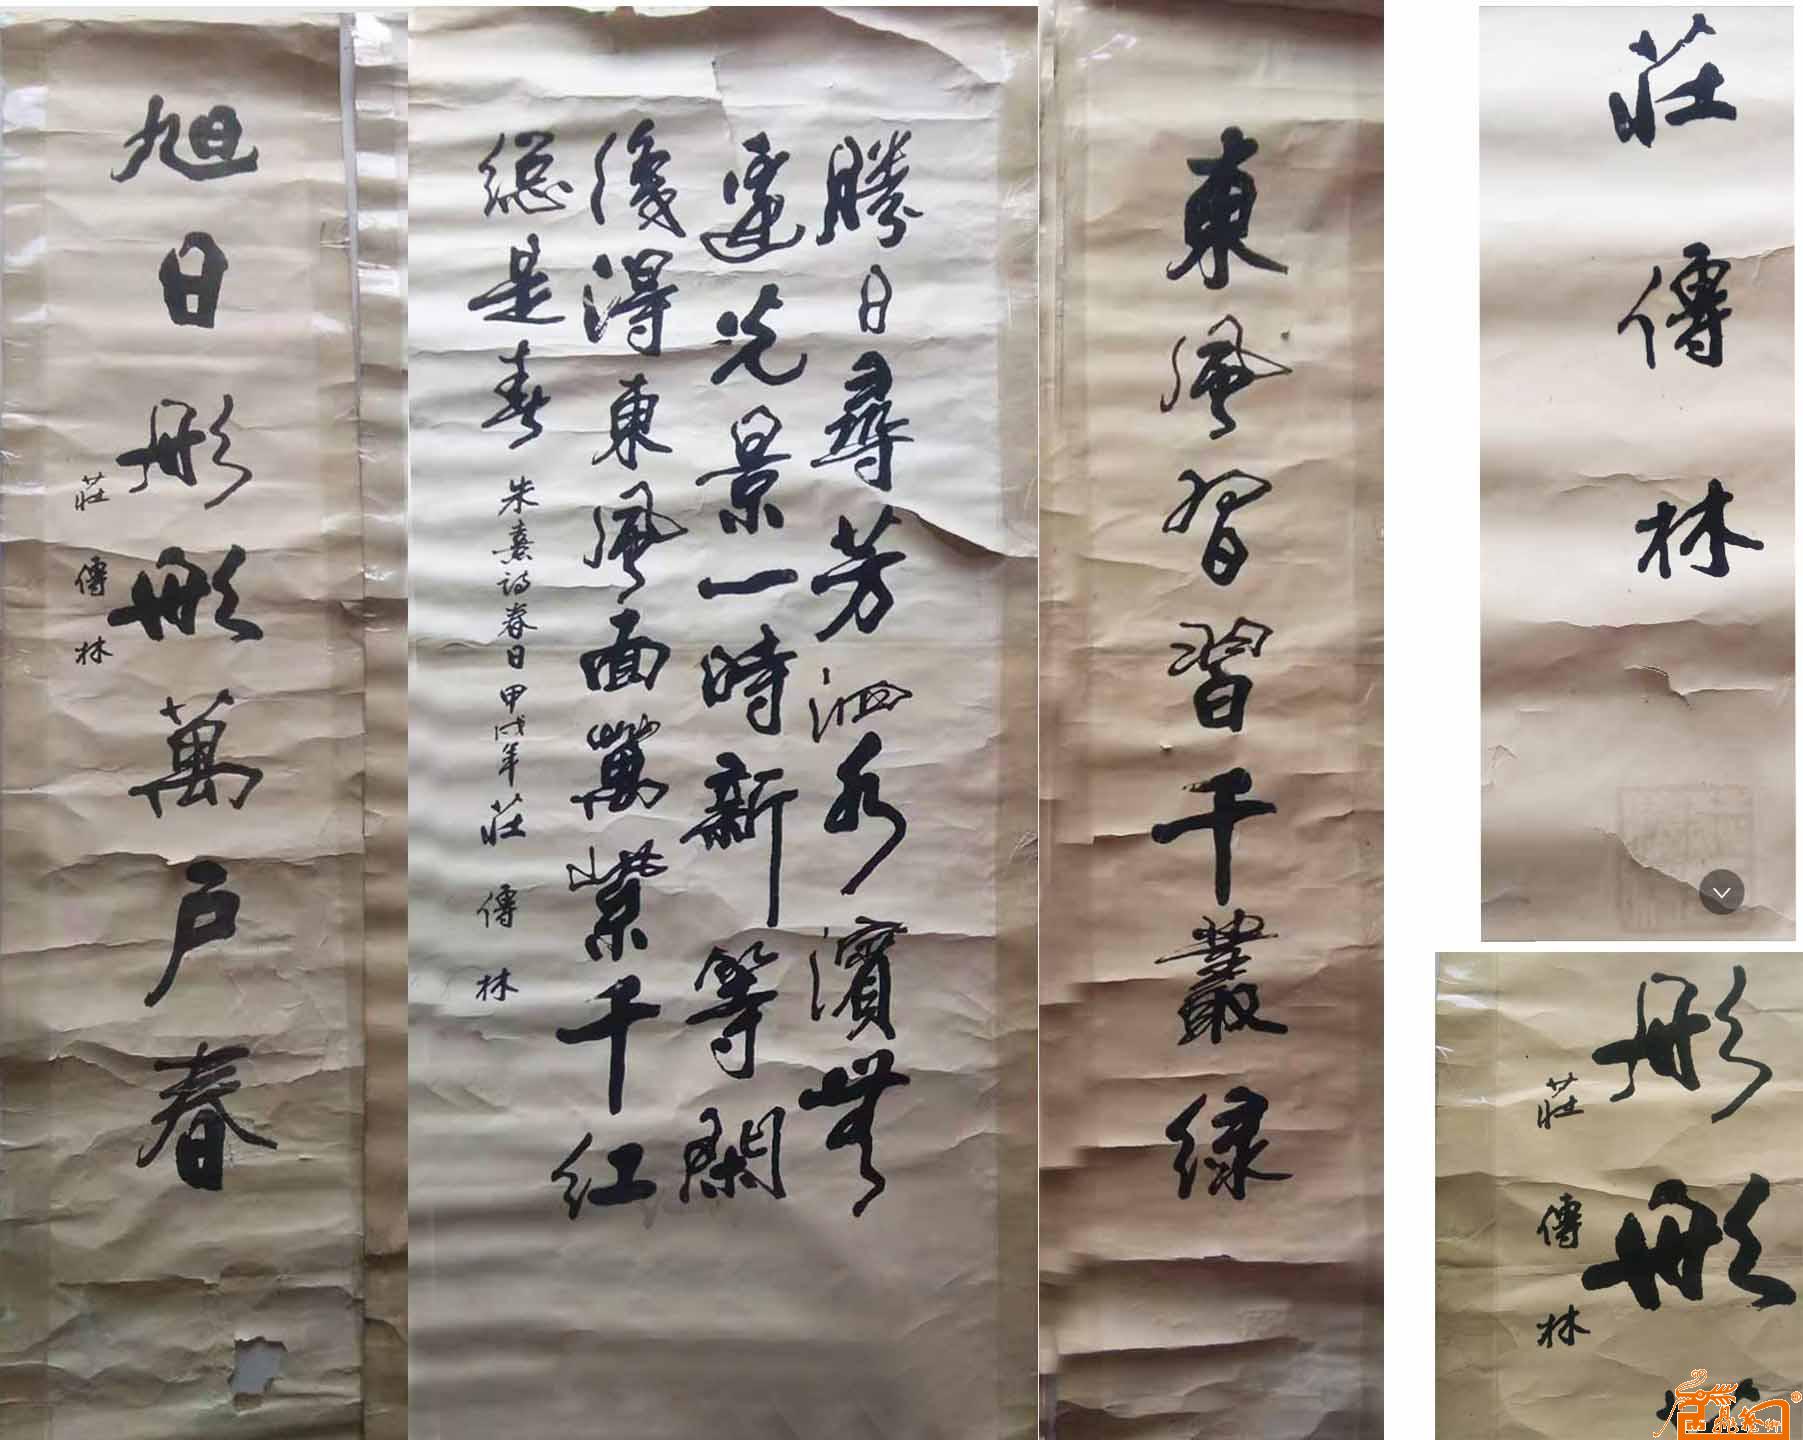 東風習習千叢綠
勝日尋芳泗水濱無
邊光景一時新等閑
識得東風面萬紫千紅
總是春
朱熹詩春日甲戌年莊傳林
旭日彤彤萬戶春
莊傳林
莊傳林
彤彤
莊傳林